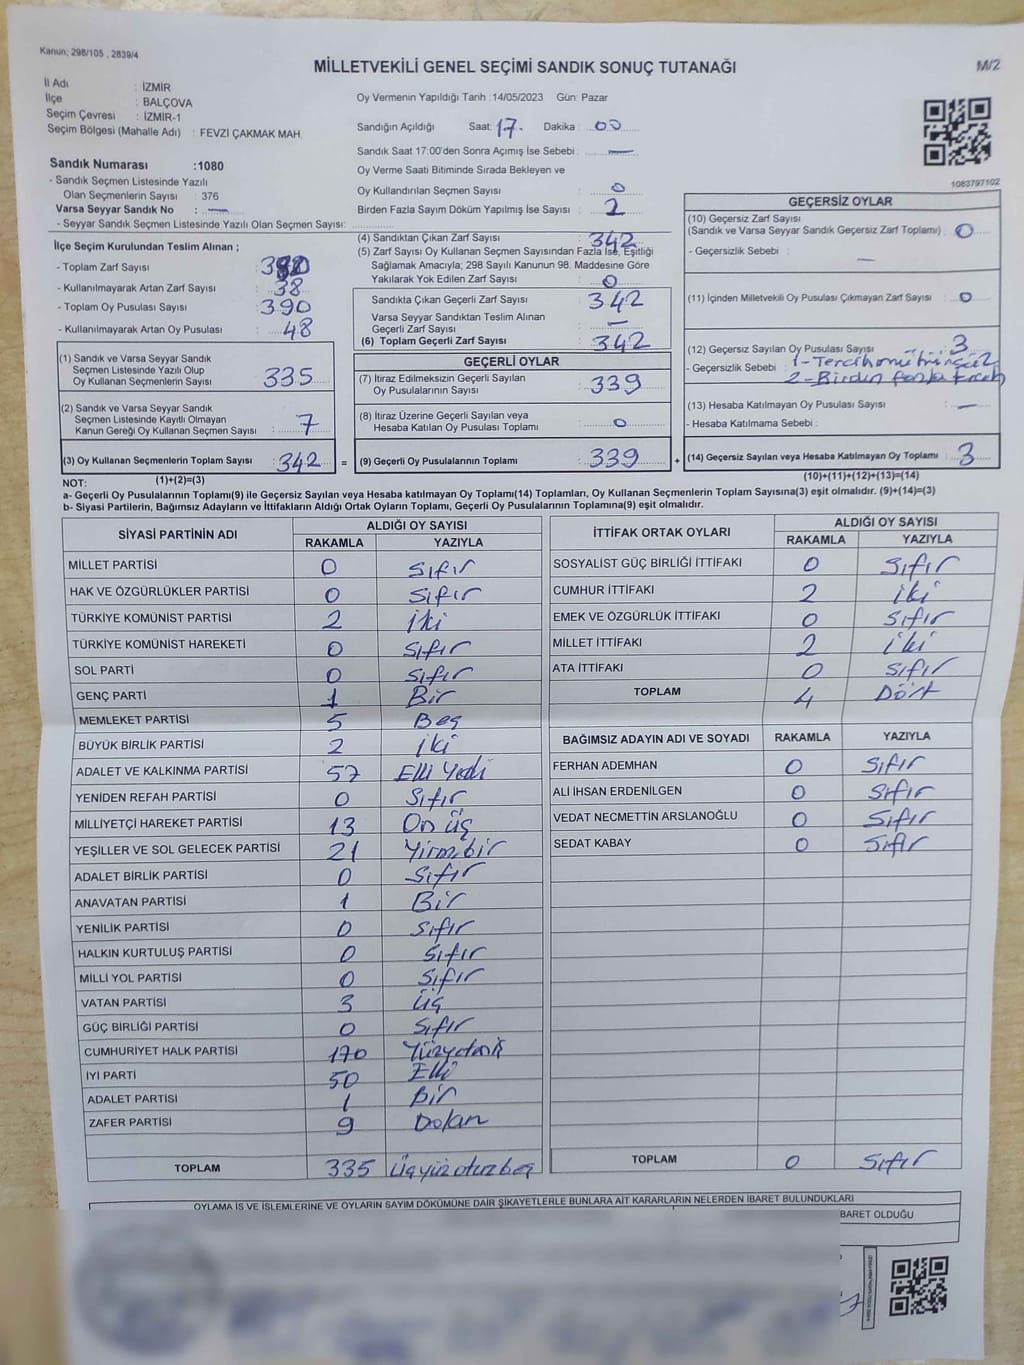 Kanun; 298/105 , 2839/4
MİLLETVEKİLİ GENEL SEÇİMİ SANDIK SONUÇ TUTANAĞI
M/2
İl Adı : İZMİR
İlçe : BALÇOVA
Seçim Çevresi : İZMİR-1
Seçim Bölgesi (Mahalle Adı) : FEVZİ ÇAKMAK MAH.
Sandık Numarası :1080
- Sandık Seçmen Listesinde Yazılı
Olan Seçmenlerin Sayısı : 376
Varsa Seyyar Sandık No : —
- Seyyar Sandık Seçmen Listesinde Yazılı Olan Seçmen Sayısı:
Oy Vermenin Yapıldığı Tarih :14/05/2023 Gün: Pazar
Sandığın Açıldığı Saat: 17. Dakika : 00
Sandık Saat 17:00'den Sonra Açımış İse Sebebi : —
Oy Verme Saati Bitiminde Sırada Bekleyen ve
Oy Kullandırılan Seçmen Sayısı : 0
Birden Fazla Sayım Döküm Yapılmış İse Sayısı : 2
1083797102
İlçe Seçim Kurulundan Teslim Alınan ;
- Toplam Zarf Sayısı :
- Kullanılmayarak Artan Zarf Sayısı : 38
- Toplam Oy Pusulası Sayısı : 390
- Kullanılmayarak Artan Oy Pusulası : 48
(1) Sandık ve Varsa Seyyar Sandık
Seçmen Listesinde Yazılı Olup
Oy Kullanan Seçmenlerin Sayısı : 335
(2) Sandık ve Varsa Seyyar Sandık
Seçmen Listesinde Kayıtlı Olmayan
Kanun Gereği Oy Kullanan Seçmen Sayısı : 7
(3) Oy Kullanan Seçmenlerin Toplam Sayısı : 342 =
(1)+(2)=(3)
(4) Sandıktan Çıkan Zarf Sayısı : 342
(5) Zarf Sayısı Oy Kullanan Seçmen Sayısından Fazla İse, Eşitliği
Sağlamak Amacıyla; 298 Sayılı Kanunun 98. Maddesine Göre
Yakılarak Yok Edilen Zarf Sayısı : 0
Sandıkta Çıkan Geçerli Zarf Sayısı : 342
Varsa Seyyar Sandıktan Teslim Alınan
Geçerli Zarf Sayısı : —
(6) Toplam Geçerli Zarf Sayısı : 342
GEÇERLİ OYLAR
(7) İtiraz Edilmeksizin Geçerli Sayılan
Oy Pusulalarının Sayısı : 339
(8) İtiraz Üzerine Geçerli Sayılan veya
Hesaba Katılan Oy Pusulası Toplamı : 0
(9) Geçerli Oy Pusulalarının Toplamı : 339 +
GEÇERSİZ OYLAR
(10) Geçersiz Zarf Sayısı
(Sandık ve Varsa Seyyar Sandık Geçersiz Zarf Toplamı) : 0
- Geçersizlik Sebebi : —
(11) İçinden Milletvekili Oy Pusulası Çıkmayan Zarf Sayısı : 0
(12) Geçersiz Sayılan Oy Pusulası Sayısı : 3
- Geçersizlik Sebebi : 1-
2- Birden fazla
(13) Hesaba Katılmayan Oy Pusulası Sayısı : —
- Hesaba Katılmama Sebebi :
(14) Geçersiz Sayılan veya Hesaba Katılmayan Oy Toplamı : 3
(10)+(11)+(12)+(13)=(14)
NOT:
a- Geçerli Oy Pusulalarının Toplamı(9) ile Geçersiz Sayılan veya Hesaba katılmayan Oy Toplamı(14) Toplamları, Oy Kullanan Seçmenlerin Toplam Sayısına(3) eşit olmalıdır. (9)+(14)=(3)
b- Siyasi Partilerin, Bağımsız Adayların ve İttifakların Aldığı Ortak Oyların Toplamı, Geçerli Oy Pusulalarının Toplamına(9) eşit olmalıdır.
SİYASİ PARTİNİN ADI ALDIĞI OY SAYISI
RAKAMLA YAZIYLA
MİLLET PARTİSİ 0 Sıfır
HAK VE ÖZGÜRLÜKLER PARTİSİ 0 Sıfır
TÜRKİYE KOMÜNİST PARTİSİ 2 İki
TÜRKİYE KOMÜNİST HAREKETİ 0 Sıfır
SOL PARTİ 0 Sıfır
GENÇ PARTİ 1 Bir
MEMLEKET PARTİSİ 5 Beş
BÜYÜK BİRLİK PARTİSİ 2 iki
ADALET VE KALKINMA PARTİSİ 57 Elli Yedi
YENİDEN REFAH PARTİSİ 0 Sıfır
MİLLİYETÇİ HAREKET PARTİSİ 13 On üç
YEŞİLLER VE SOL GELECEK PARTİSİ 21 Yirmibir
ADALET BİRLİK PARTİSİ 0 Sıfır
ANAVATAN PARTİSİ 1 Bir
YENİLİK PARTİSİ 0 Sıfır
HALKIN KURTULUŞ PARTİSİ 0 Sıfır
MİLLİ YOL PARTİSİ 0 Sıfır
VATAN PARTİSİ 3 Üç
GÜÇ BİRLİĞİ PARTİSİ 0 Sıfır
CUMHURİYET HALK PARTİSİ 170 Yüzyetmiş
İYİ PARTİ 50 Elli
ADALET PARTİSİ 1 Bir
ZAFER PARTİSİ 9 Dokuz
TOPLAM 335 Üçyüz otuz beş
İTTİFAK ORTAK OYLARI ALDIĞI OY SAYISI
RAKAMLA YAZIYLA
SOSYALİST GÜÇ BİRLİĞİ İTTİFAKI 0 Sıfır
CUMHUR İTTİFAKI 2 iki
EMEK VE ÖZGÜRLÜK İTTİFAKI 0 Sıfır
MİLLET İTTİFAKI 2 iki
ATA İTTİFAKI 0 Sıfır
TOPLAM 4 Dört
BAĞIMSIZ ADAYIN ADI VE SOYADI RAKAMLA YAZIYLA
FERHAN ADEMHAN 0 Sıfır
ALİ İHSAN ERDENİLGEN 0 Sıfır
VEDAT NECMETTİN ARSLANOĞLU 0 Sıfır
SEDAT KABAY 0 Sıfır
TOPLAM 0 Sıfır
OYLAMA İŞ VE İŞLEMLERİNE VE OYLARIN SAYIM DÖKÜMÜNE DAİR ŞİKAYETLERLE BUNLARA AİT KARARLARIN NELERDEN İBARET BULUNDUKLARI
BARET OLDUĞU